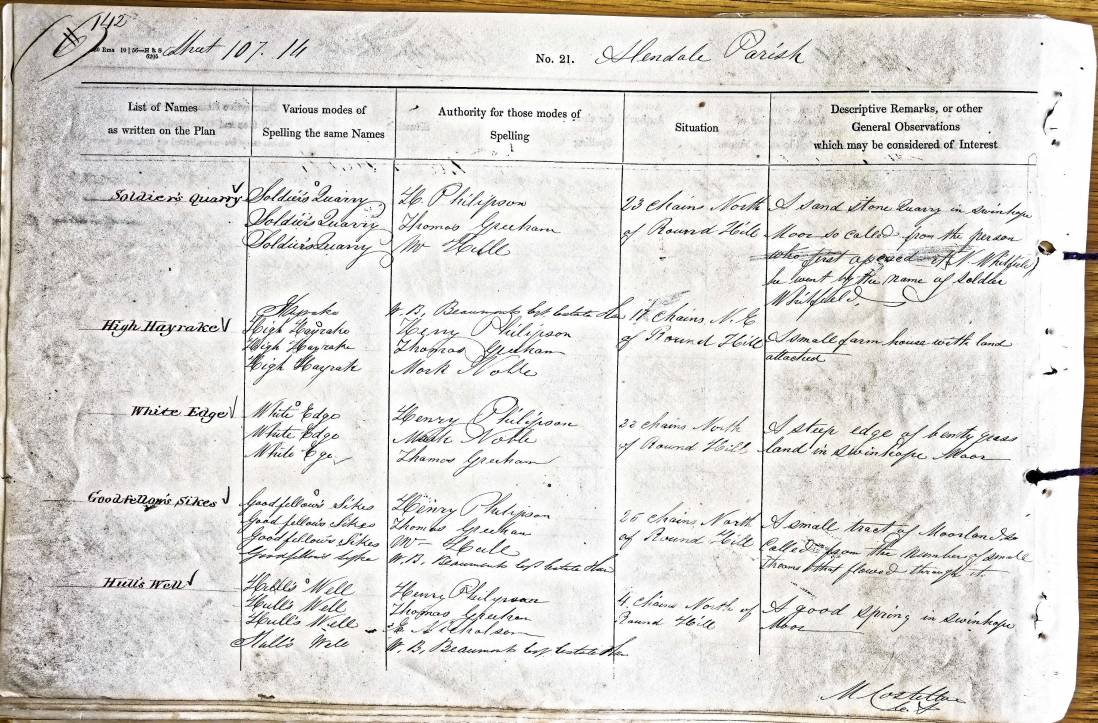 142
11
Sheet 107. 14
No. 21. Allendale Parish
List of Names
as written on the Plan
Various modes of
Spelling the same Names
Authority for those modes of
Spelling
Situation
Descriptive Remarks, or other
General Observations
which may be considered of Interest
Soldier's Quarry
Soldier's Quarry
Soldier's Quarry
Soldier's Quarry
H. Philipson
Thomas Greeham
Mr Hull
23 chains North
of Round Hill
A sand stone Quarry in swinhope
Moor so called from the person
who first opened it (N. Whitfield)
he went by the name of soldier
Whitfield
High Hayrake
Hayrake
High Hayrake
High Hayrake
High Hayrake
W. B. Beaumont Esq Estate
Henry Philipson
Thomas Greeham
Mark Noble
17 chains N. E
of Round Hill
A small farm house with land
attached
White Edge
White Edge
White Edge
White Ege
Henry Philipson
Mark Noble
Thomas Greeham
22 chains North
of Round Hill
A steep edge of benty grass
land in swinhope Moor
Goodfellow's Sikes
Goodfellow's Sikes
Goodfellows Sikes
Goodfellow's Sikes
Goodfellow Syke
Henry Philipson
Thomas Greeham
Mr Hull
W. B. Beaumont Esq Estate
25 chains North
of Round Hill
A small tract of Moorland so
Called from the number of small
streams that flowed through it.
Hull's Well
Hull's Well
Hull's Well
Hull's Well
Hall's Well
Henry Philipson
Thomas Greeham
Nicholson
W. B. Beaumont Esq Estate
4 chains North of
Round Hill
A good spring in swinhope
Moor
M Costello
C. A